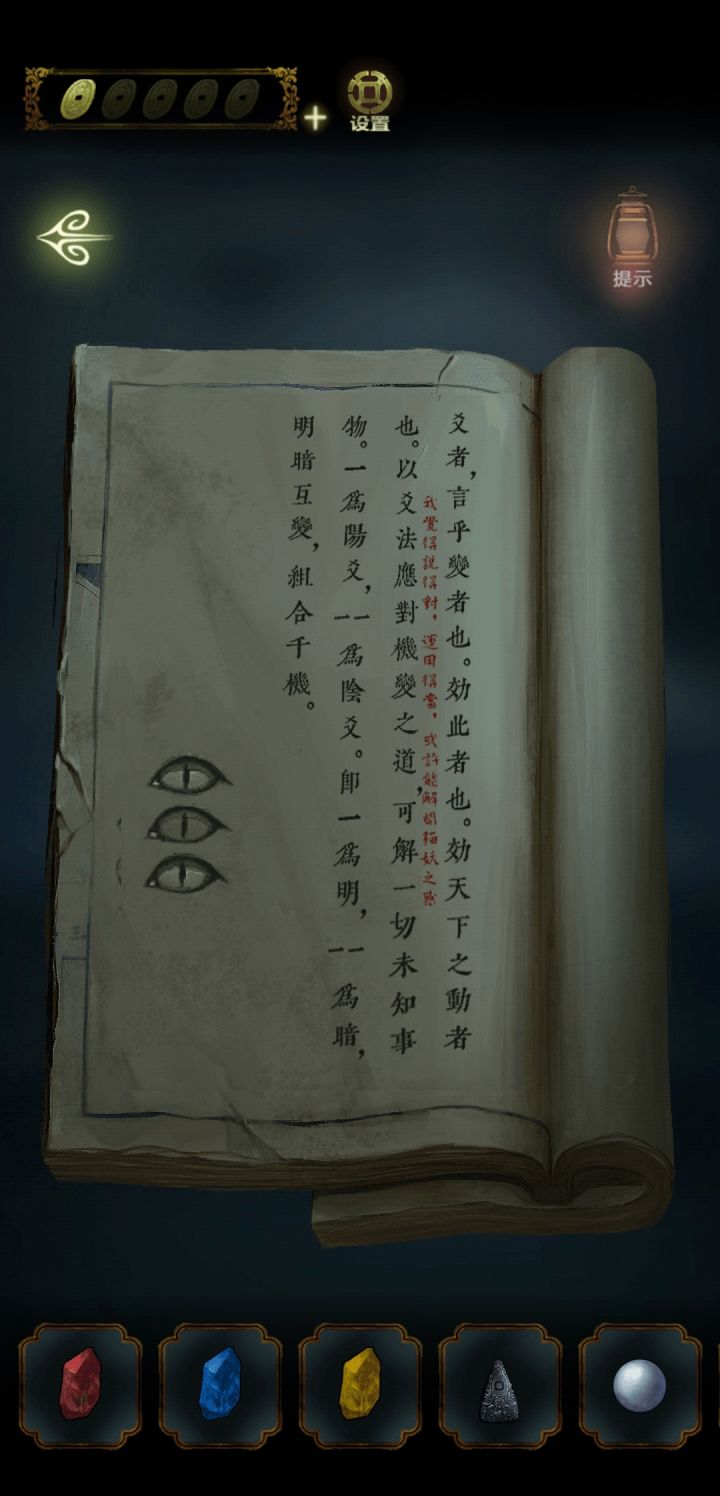 设置
提示
爻者，言乎變者也。効此者也。効天下之動者
我覺得說得對，運用得當，或許能解開貓妖之惑
也。以爻法應對機變之道，可解一切未知事
物。一爲陽爻，一一爲陰爻。卽一爲明，一一爲暗，
明暗互變，組合千機。